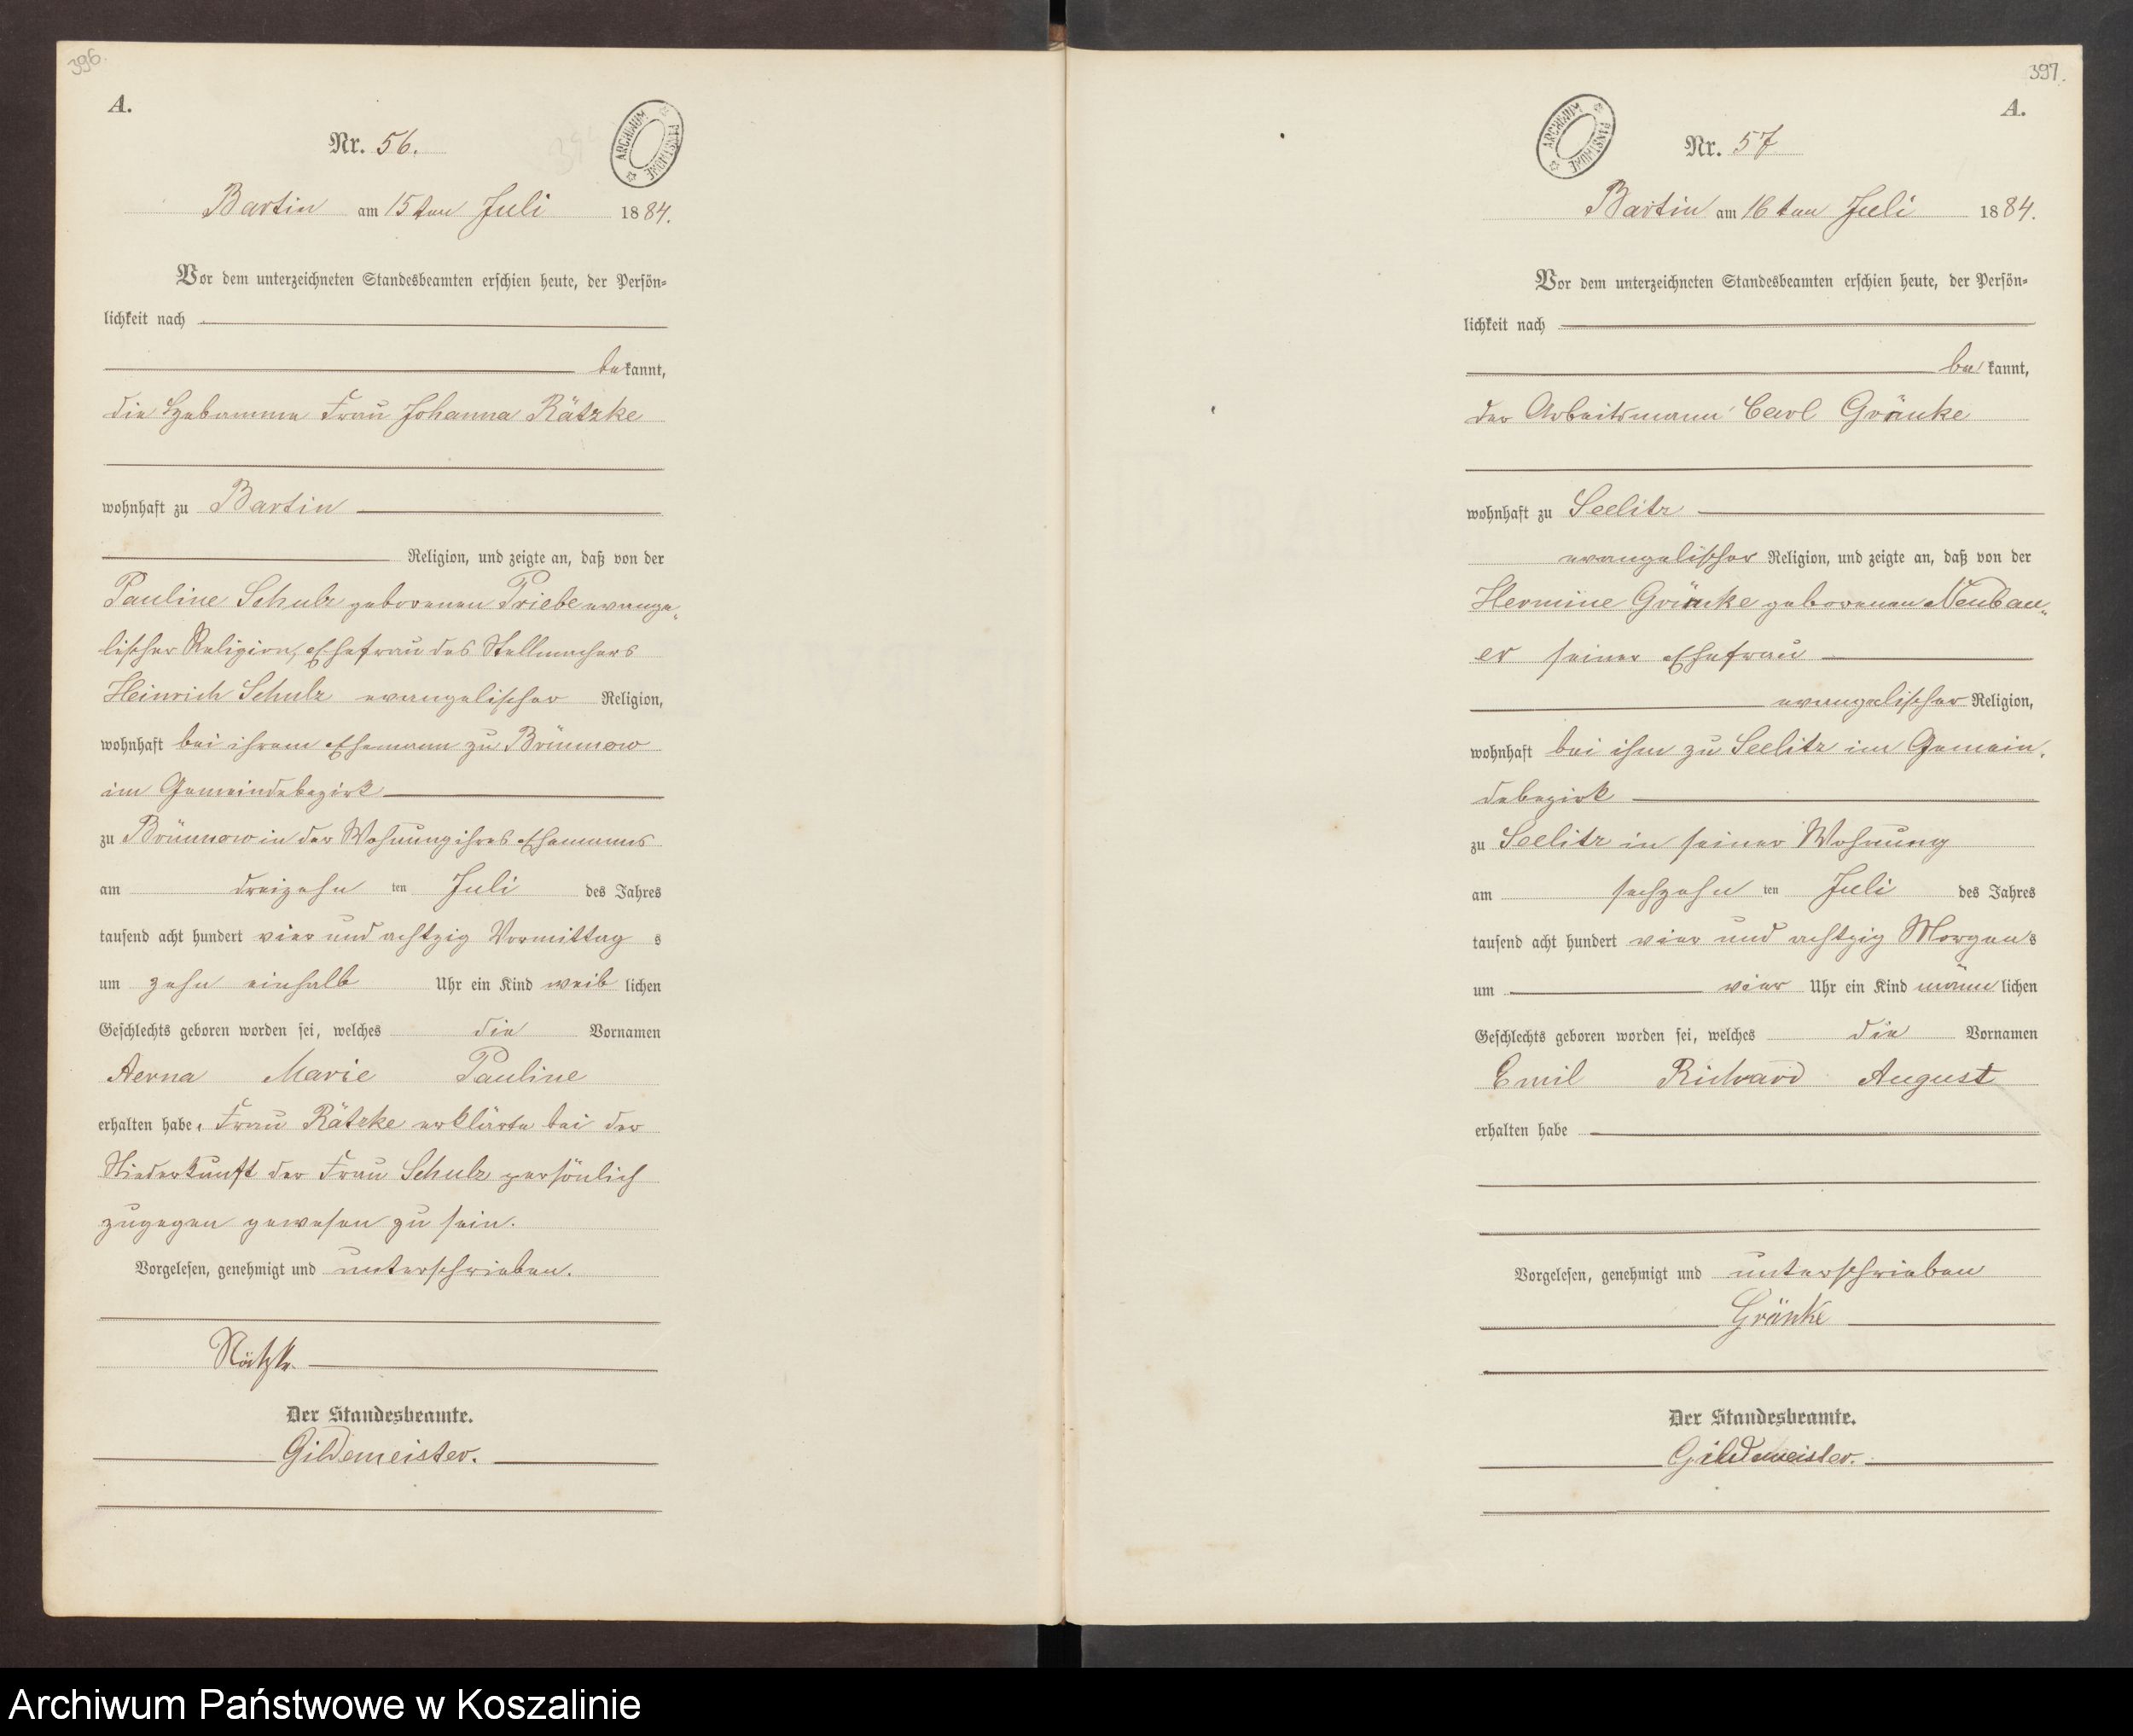 396.
A.
Nr. 56.
ARCHIWUM PAŃSTWOWE
Bartin am 15ten Juli 1884.
Vor dem unterzeichneten Standesbeamten erschien heute, der Persön-
lichkeit nach
bekannt,
die Hebamme Frau Johanna Rätzke
wohnhaft zu Bartin
Religion, und zeigte an, daß von der
Pauline Schulz geborenen Priebe evange-
lischer Religion, Ehefrau des Stellmachers
Heinrich Schulz evangelischer Religion,
wohnhaft bei ihrem Ehemann zu Brünnow
im Gemeindebezirk
zu Brünnow in der Wohnung ihres Ehemanns
am dreizehn ten Juli des Jahres
tausend acht hundert vier und achtzig Vormittag s
um zehn einhalb Uhr ein Kind weib lichen
Geschlechts geboren worden sei, welches die Vornamen
Aerna Marie Pauline
erhalten habe, Frau Rätzke erklärte bei der
Niederkunft der Frau Schulz persönlich
zugegen gewesen zu sein.
Vorgelesen, genehmigt und unterschrieben.
Rätzke
Der Standesbeamte.
Gildemeister.
397.
A.
ARCHIWUM PAŃSTWOWE
Nr. 57
Bartin am 16ten Juli 1884.
Vor dem unterzeichneten Standesbeamten erschien heute, der Persön-
lichkeit nach
bekannt,
der Arbeitsmann Carl Gränke
wohnhaft zu Seelitz
evangelischer Religion, und zeigte an, daß von der
Hermine Gränke geborenen Neubau-
er seiner Ehefrau
evangelischer Religion,
wohnhaft bei ihm zu Seelitz im Gemein-
debezirk
zu Seelitz in seiner Wohnung
am sechzehn ten Juli des Jahres
tausend acht hundert vier und achtzig Morgens
um vier Uhr ein Kind männ lichen
Geschlechts geboren worden sei, welches die Vornamen
Emil Richard August
erhalten habe
Vorgelesen, genehmigt und unterschrieben
Gränke
Der Standesbeamte.
Gildemeister.
Archiwum Państwowe w Koszalinie